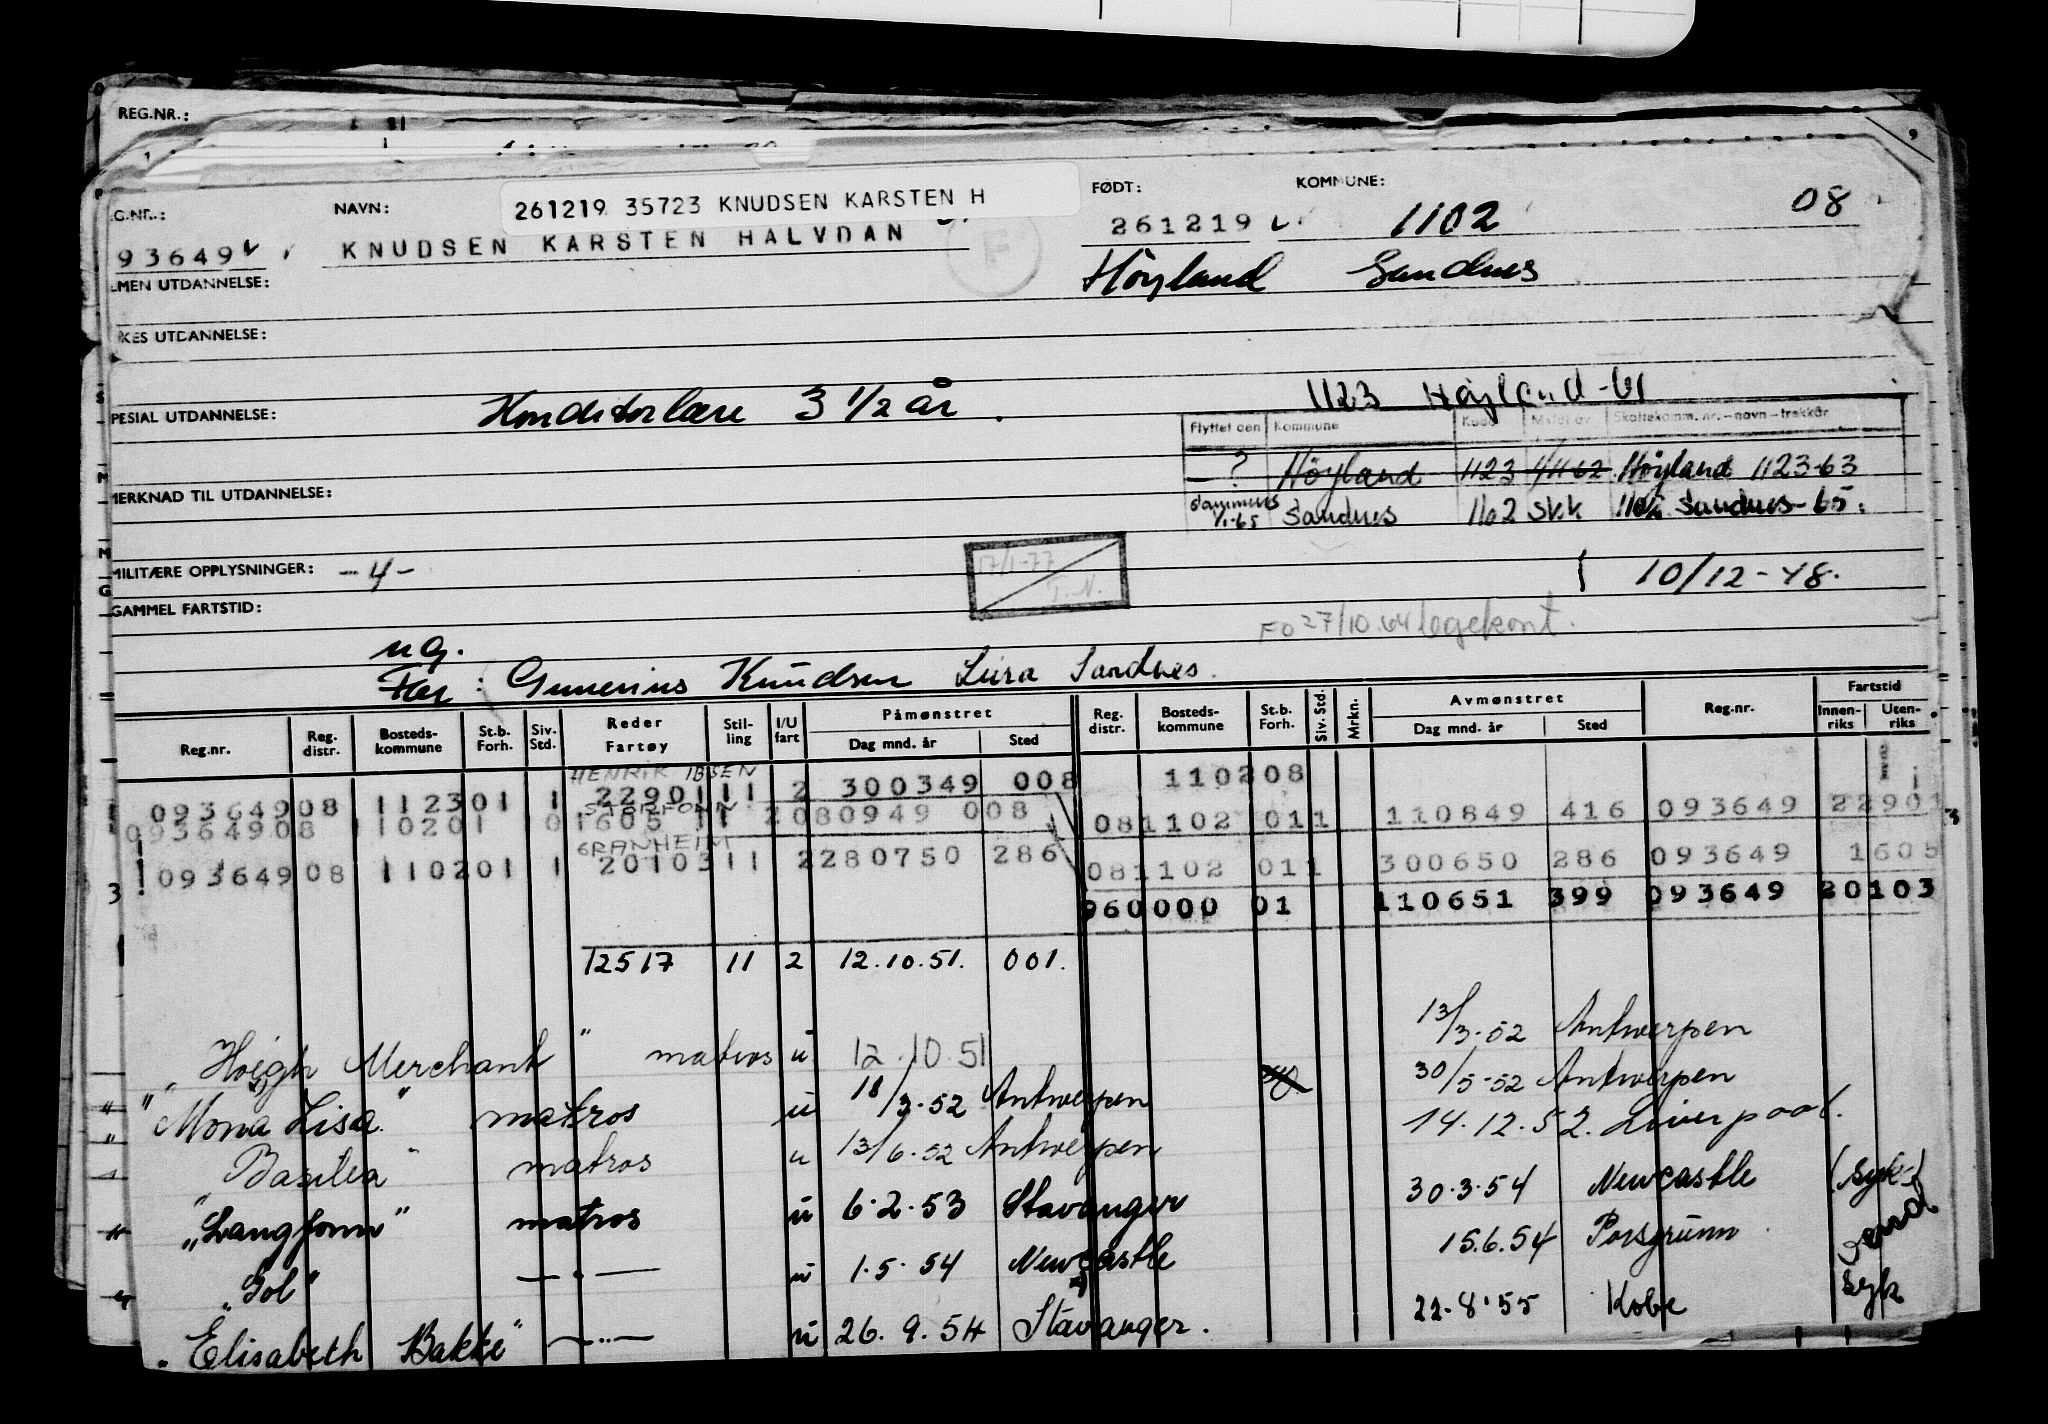 REG.NR.:
9
G.NR.: NAVN: FØDT: KOMMUNE:
261219 35723 KNUDSEN KARSTEN H
93649 KNUDSEN KARSTEN HALVDAN F 261219 1102 08
Höyland Sandnes
LMEN UTDANNELSE:
KES UTDANNELSE:
PESIAL UTDANNELSE: Konditorlære 3 1/2 år. 1123 Høyland-61
Flyttet den Kommune Kode Meldt av Skattekomm. nr.-navn-trekkår
? Höyland 1123 4/4 62 Höyland 1123-63
1/1-65 Sandnes 1102 Skk 1102 Sandnes-65.
MERKNAD TIL UTDANNELSE:
17/1-77 T.N.
MILITÆRE OPPLYSNINGER: -4- 10/12-48.
GAMMEL FARTSTID:
FO 27/10.64 legekont.
ug.
Far: Gunerius Knudsen Lura Sandnes.
Reg.nr. Reg. distr. Bosteds-kommune St.b. Forh. Siv. Std. Reder Fartøy Stil-ling I/U fart Påmønstret Dag mnd. år Sted Reg. distr. Bosteds-kommune St.b. Forh. Siv. Std. Mrkn. Avmønstret Dag mnd. år Sted Reg.nr. Fartstid Innen-riks Uten-riks
HENRIK IBSEN
09364908 112301 1 2290111 2 300349 008 110208
09364908 110201 0 1605 11 2080949 008 081102 011 110849 416 093649 22901
GRANHEIM
09364908 110201 1 2010311 2280750 286 081102 011 300650 286 093649 1605
3 960000 01 110651 399 093649 20103
12517 11 2 12.10.51. 001.
"Høegh Merchant" matros u 12.10.51 13/3.52 Antwerpen
"Mona Lisa" matros u 18/3.52 Antwerpen 30/5-52 Antwerpen
"Basilea" matros u 13/6.52 Antwerpen 14.12.52. Liverpool.
"Langfonn" matros u 6.2.53 Stavanger 30.3.54 Newcastle (syk)
"Sol" —.— u 1.5.54 Newcastle 15.6.54 Porsgrunn
"Elisabeth Bakke" —..— u 26.9.54 Stavanger. 22.8.55 Kobe syk
vend